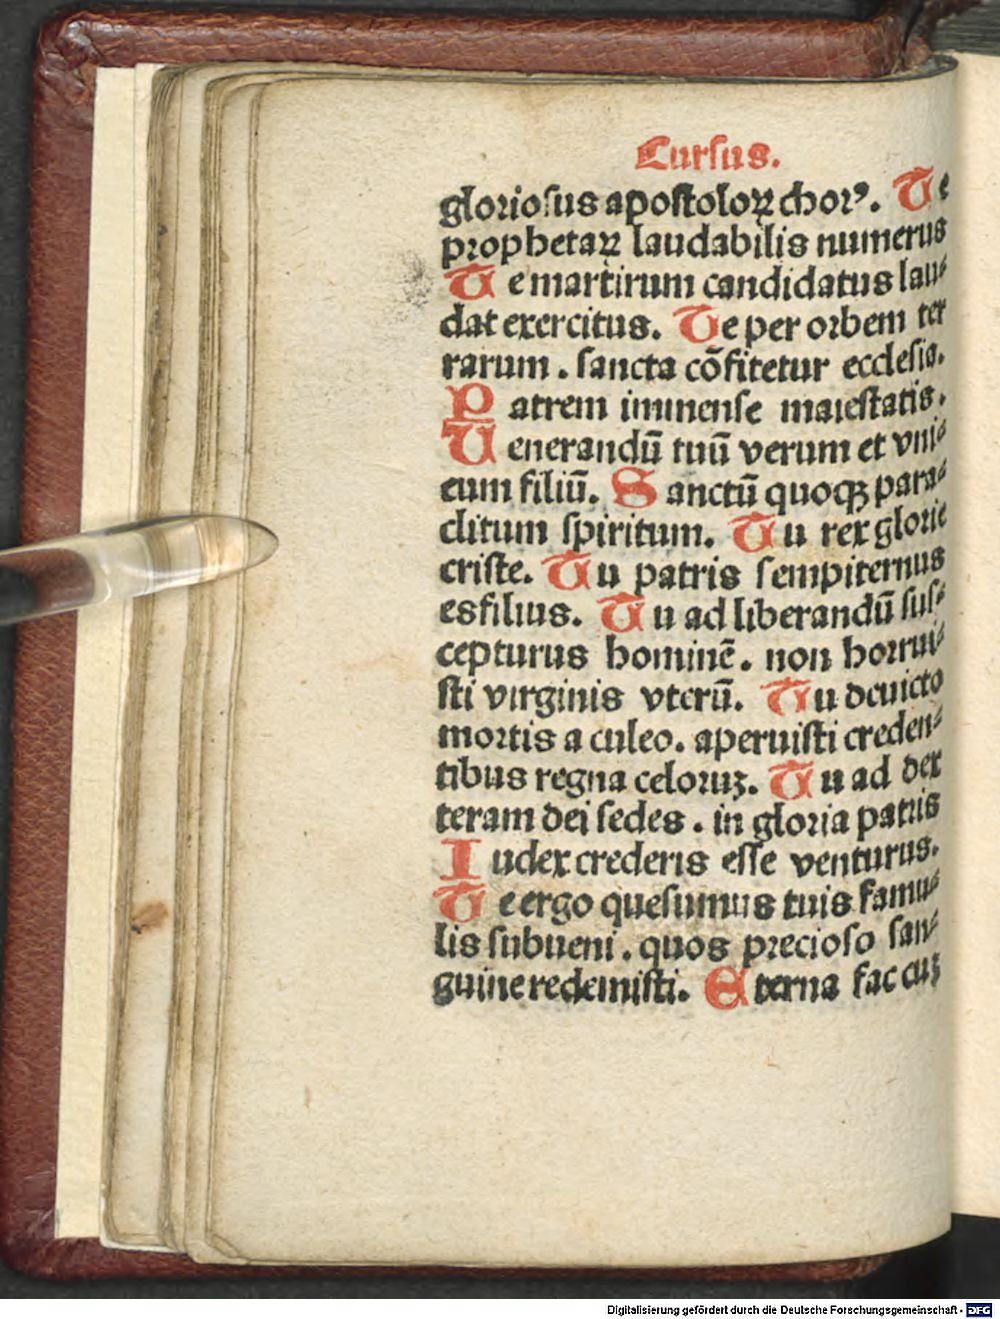 Cursus.
gloriosus apostoloꝝ choꝛꝰ. Te
prophetaꝝ laudabilis numerus
Te martirum candidatus lau⸗
dat exercitus. Te per orbem ter
rarum. sancta cōfitetur ecclesia.
Patrem immense maiestatis.
Venerandū tuū verum et vni⸗
cum filiū. Sanctū quoqꝫ para⸗
clitum spiritum. Tu rex glorie
criste. Tu patris sempiternus
es filius. Tu ad liberandū sus⸗
cepturus hominē. non horrui⸗
sti virginis vterū. Tu deuicto
mortis a culeo. aperuisti creden⸗
tibus regna celoruꝫ. Tu ad dex
teram dei sedes. in gloria patris
Iudex crederis esse venturus.
Te ergo quesumus tuis famu⸗
lis subueni. quos precioso san⸗
guine redemisti. Eterna fac cuꝫ
Digitalisierung gefördert durch die Deutsche Forschungsgemeinschaft - DFG